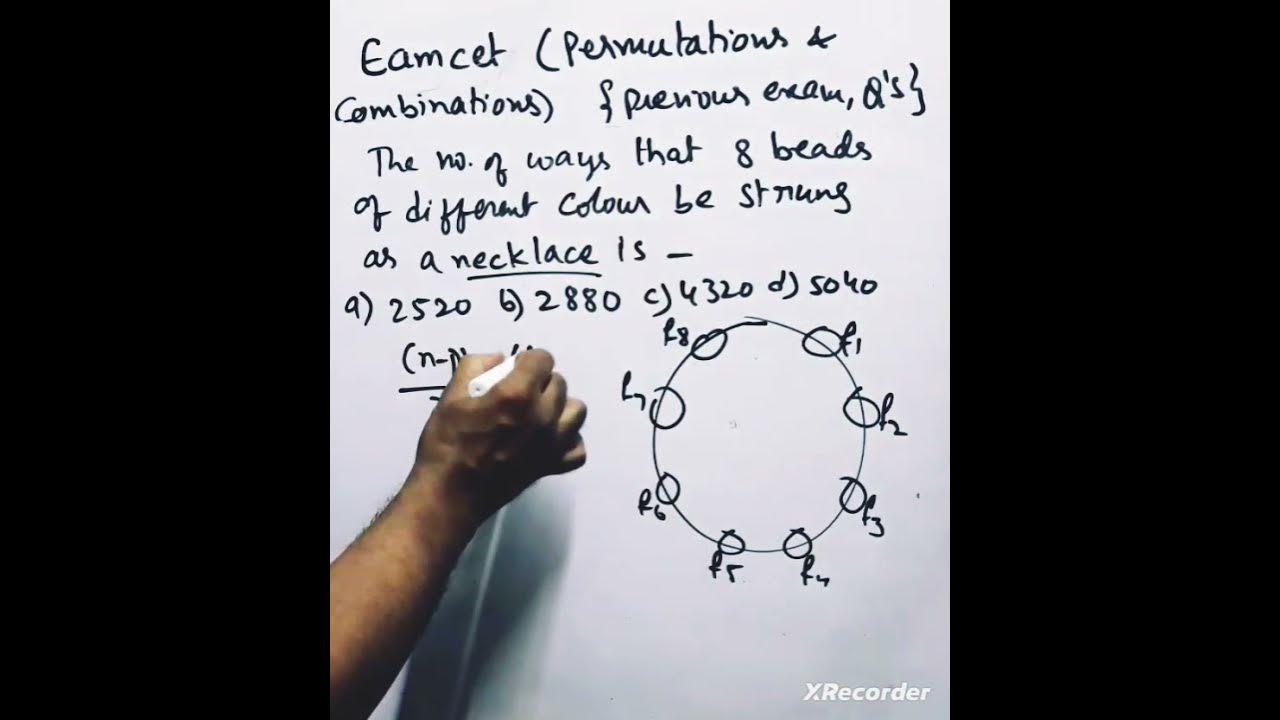 Eamcet (Permutations &
Combinations) {previous exam, Q's}
The no. of ways that 8 beads
of different colour be strung
as a necklace is –
a) 2520 b) 2880 c) 4320 d) 5040
(n-1)
f8 f1
f7 f2
f6 f3
f5 f4
XRecorder